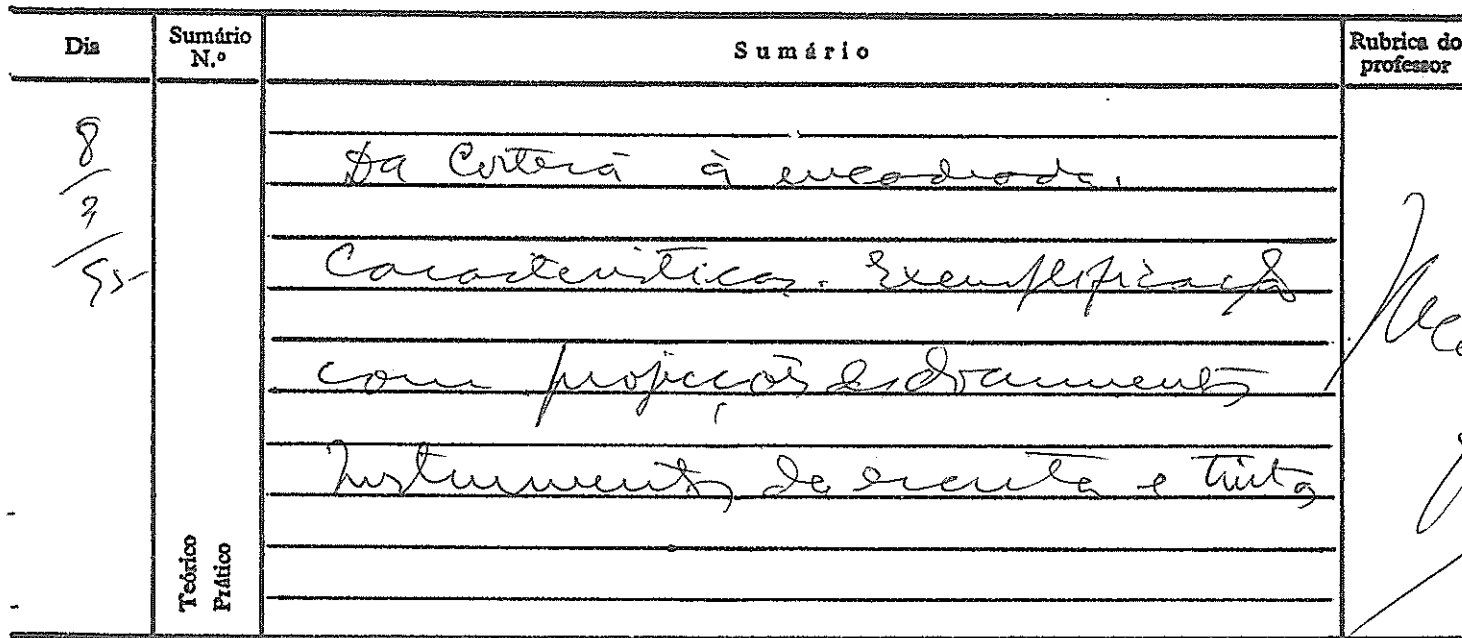 Dia
Sumário N.º
Sumário
Rubrica do professor
8
/
/95
Da Cortesã à encadeada.
Características. Exemplificação
com projecções de documentos
Instrumentos de escrita e tinta
Teórico
Prático